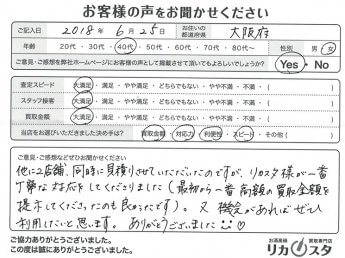 お客様の声をお聞かせください
ご記入日 2018 年 6 月 25 日 お住いの都道府県 大阪府
年齢 20代・30代・40代・50代・60代・70代・80代〜 性別 男・女
ご意見・ご感想を弊社ホームページにお客様の声として掲載させて頂いてもよろしいでしょうか？ Yes・No
査定スピード 大満足・満足・やや満足・どちらでもない・やや不満・不満
スタッフ接客 大満足・満足・やや満足・どちらでもない・やや不満・不満
買取金額 大満足・満足・やや満足・どちらでもない・やや不満・不満
当店をお選びいただきました決め手は？ 買取金額・対応力・利便性・スピード・その他( )
ご意見・ご感想などぜひお聞かせください
他に2店舗、同時に見積りさせていただいたのですが、リカスタ様が一番
丁寧な対応をしてくださりました（最初から一番高額の買取金額を
提示してくださったのも良かったです）。又機会があればぜひ
利用したいと思います。ありがとうございました
ご協力ありがとうございました。
この度は誠にありがとうございました。
お酒高額買取専門店
リカスタ